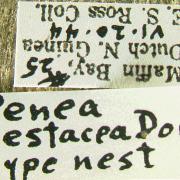 #25
Maffin Bay,
Dutch N. Guinea
VI.20.44
E. S. Ross Coll.
enea
estacea Do
ype nest